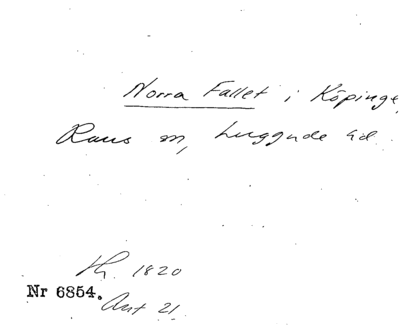 Norra Fallet i Köpinge,
Raus sn, Luggude hd.
Th. 1820
Nr 6854.
Avt 21.